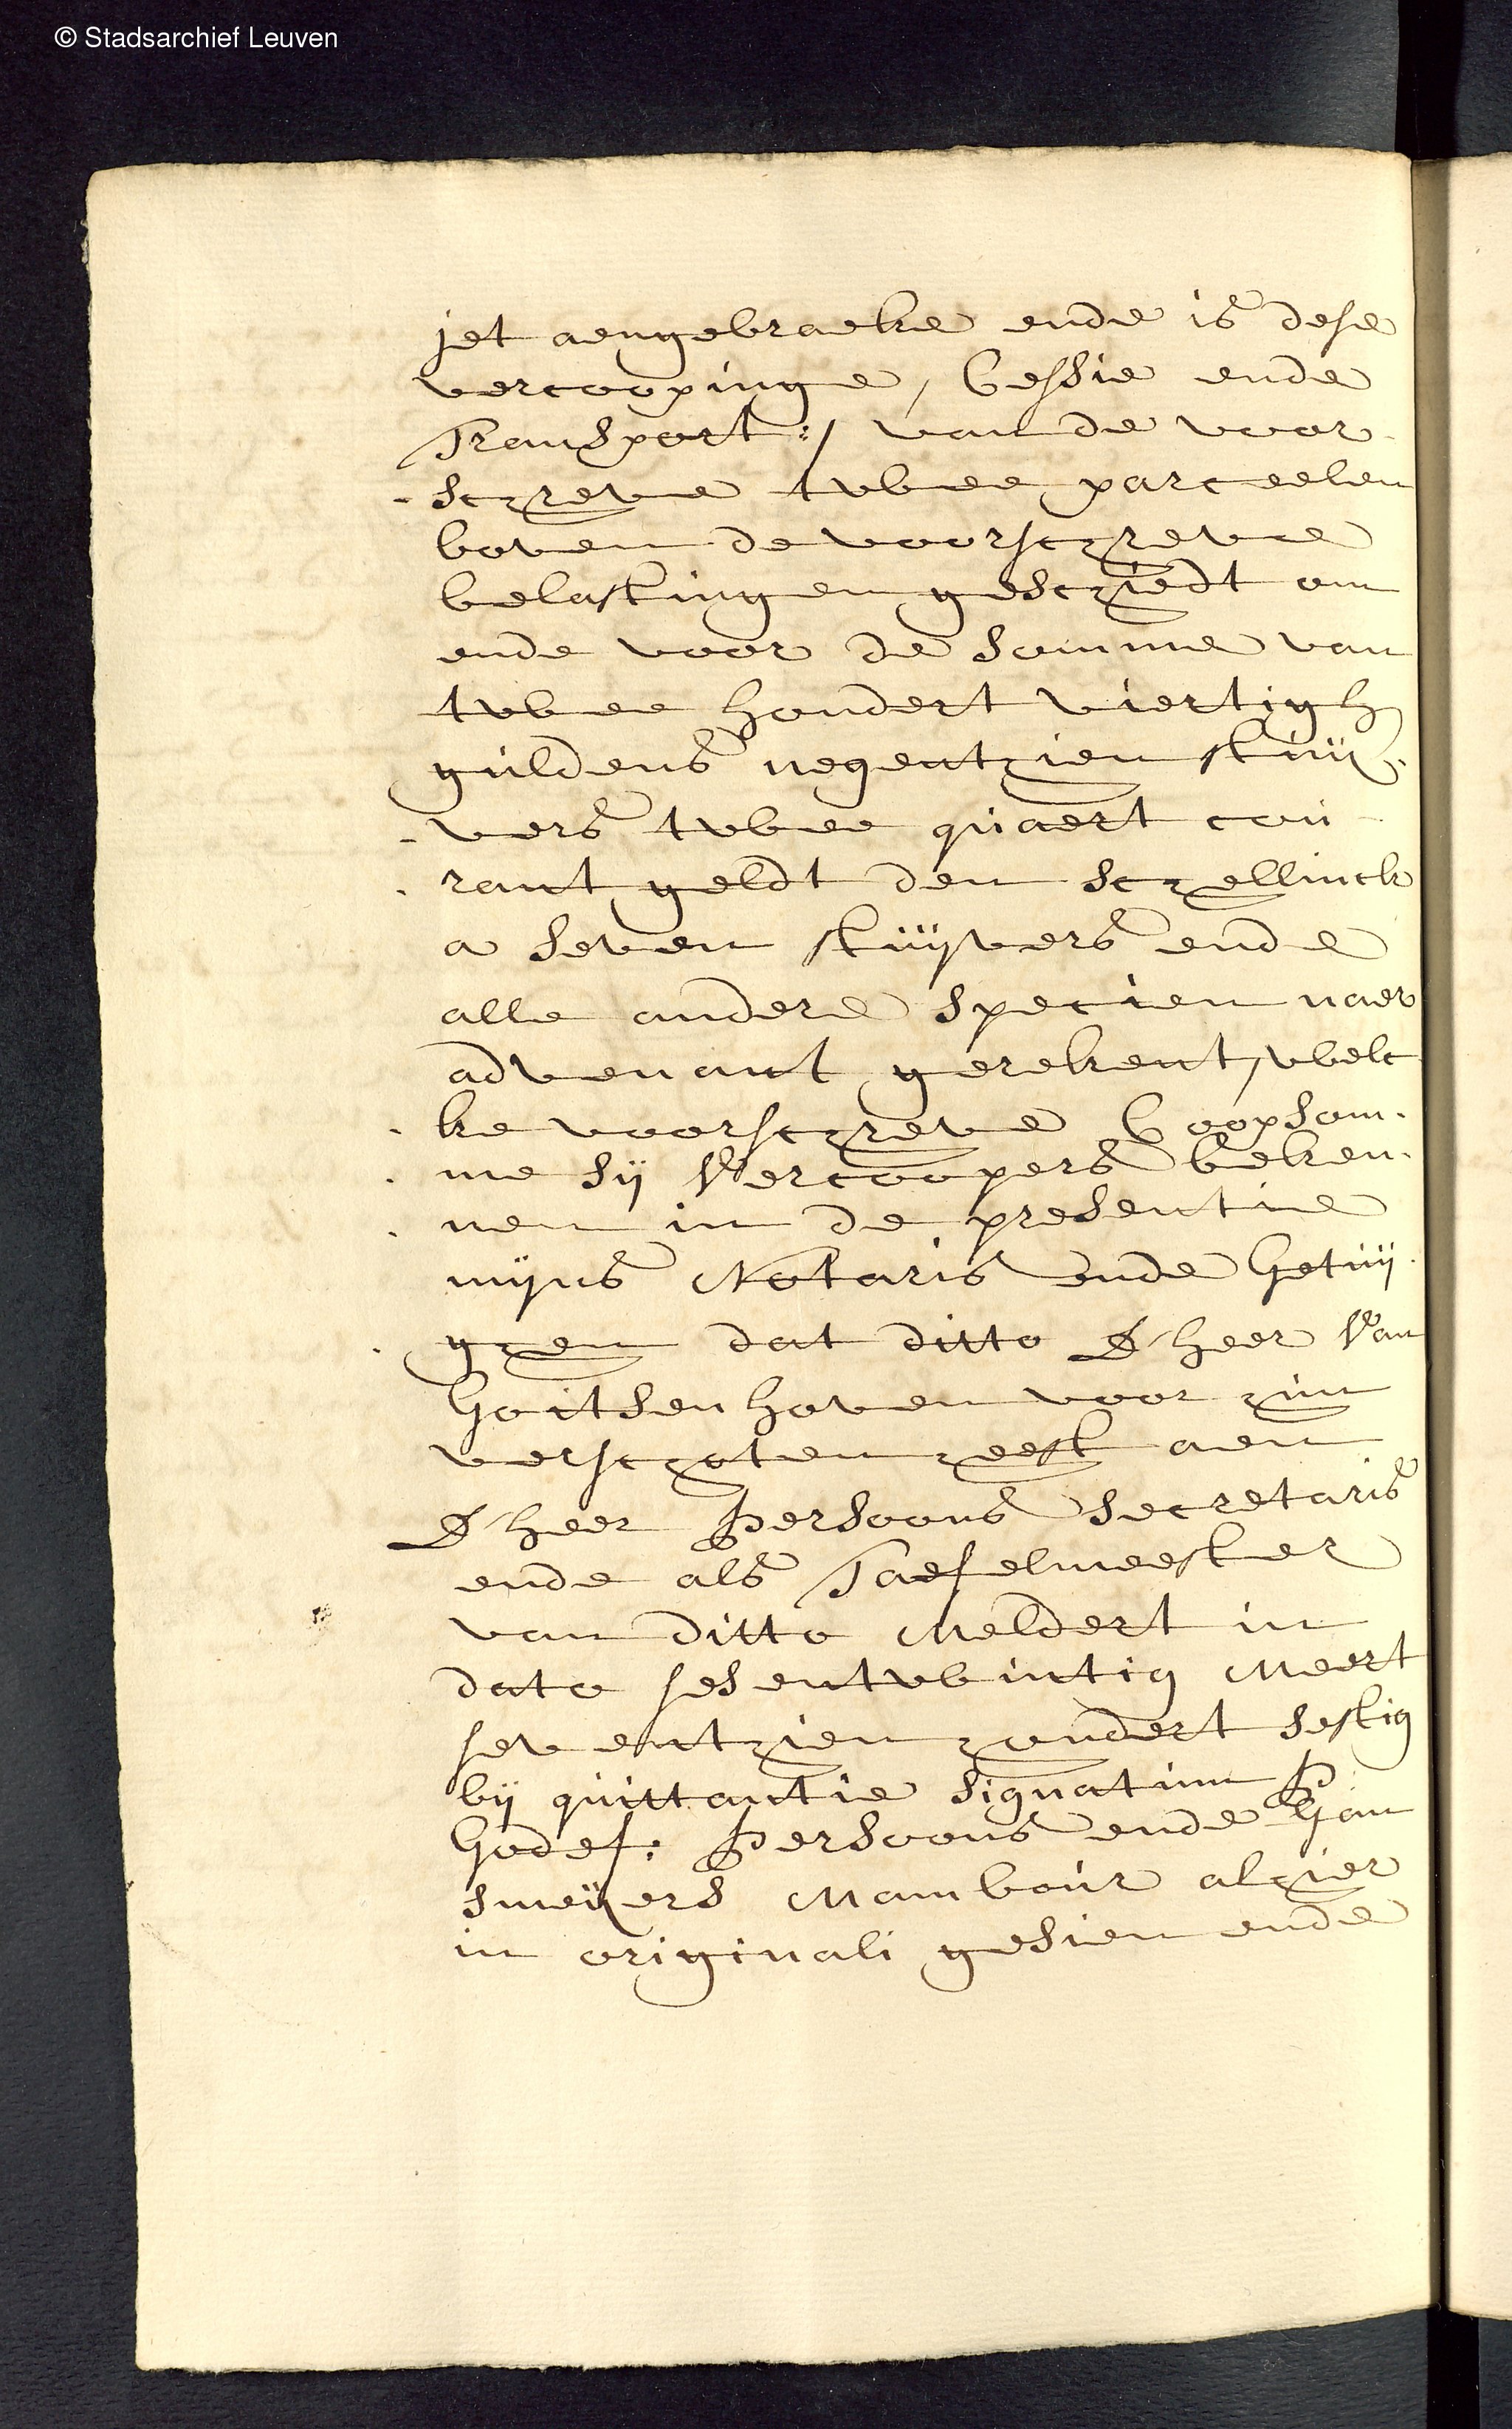 © Stadsarchief Leuven
jet aengebraeke ende is dese
vercoopinge, Cessie ende
Transport:/ van de voor
-schreve twee parceelen
boven de voorschreve
belastingen geschiedt om
ende voor de somme van
twee hondert viertigh
guldens negenthien stuij-
-vers twee quaert cou
-rant geldt den schellinck
a seven stuijvers ende
alle andere specien naer
advenant gerekent, welc
-ke voorschreve Coopsom-
-me sij Vercoopers beken-
-nen in de presentie
mijns Notaris ende Getuij-
-ghen dat ditto D'heer Van
Goitsenhoven voor hun
verschoten heeft aen
D'heer Persoons Secretaris
ende als Taefelmeester
van ditto Meldert in
dato sesentwintig Meert
seventhien hondert sestig
bij quittantie signatum P:
Godef: Persoons ende Jan
smeijers Mambour alhier
in originali gesien ende